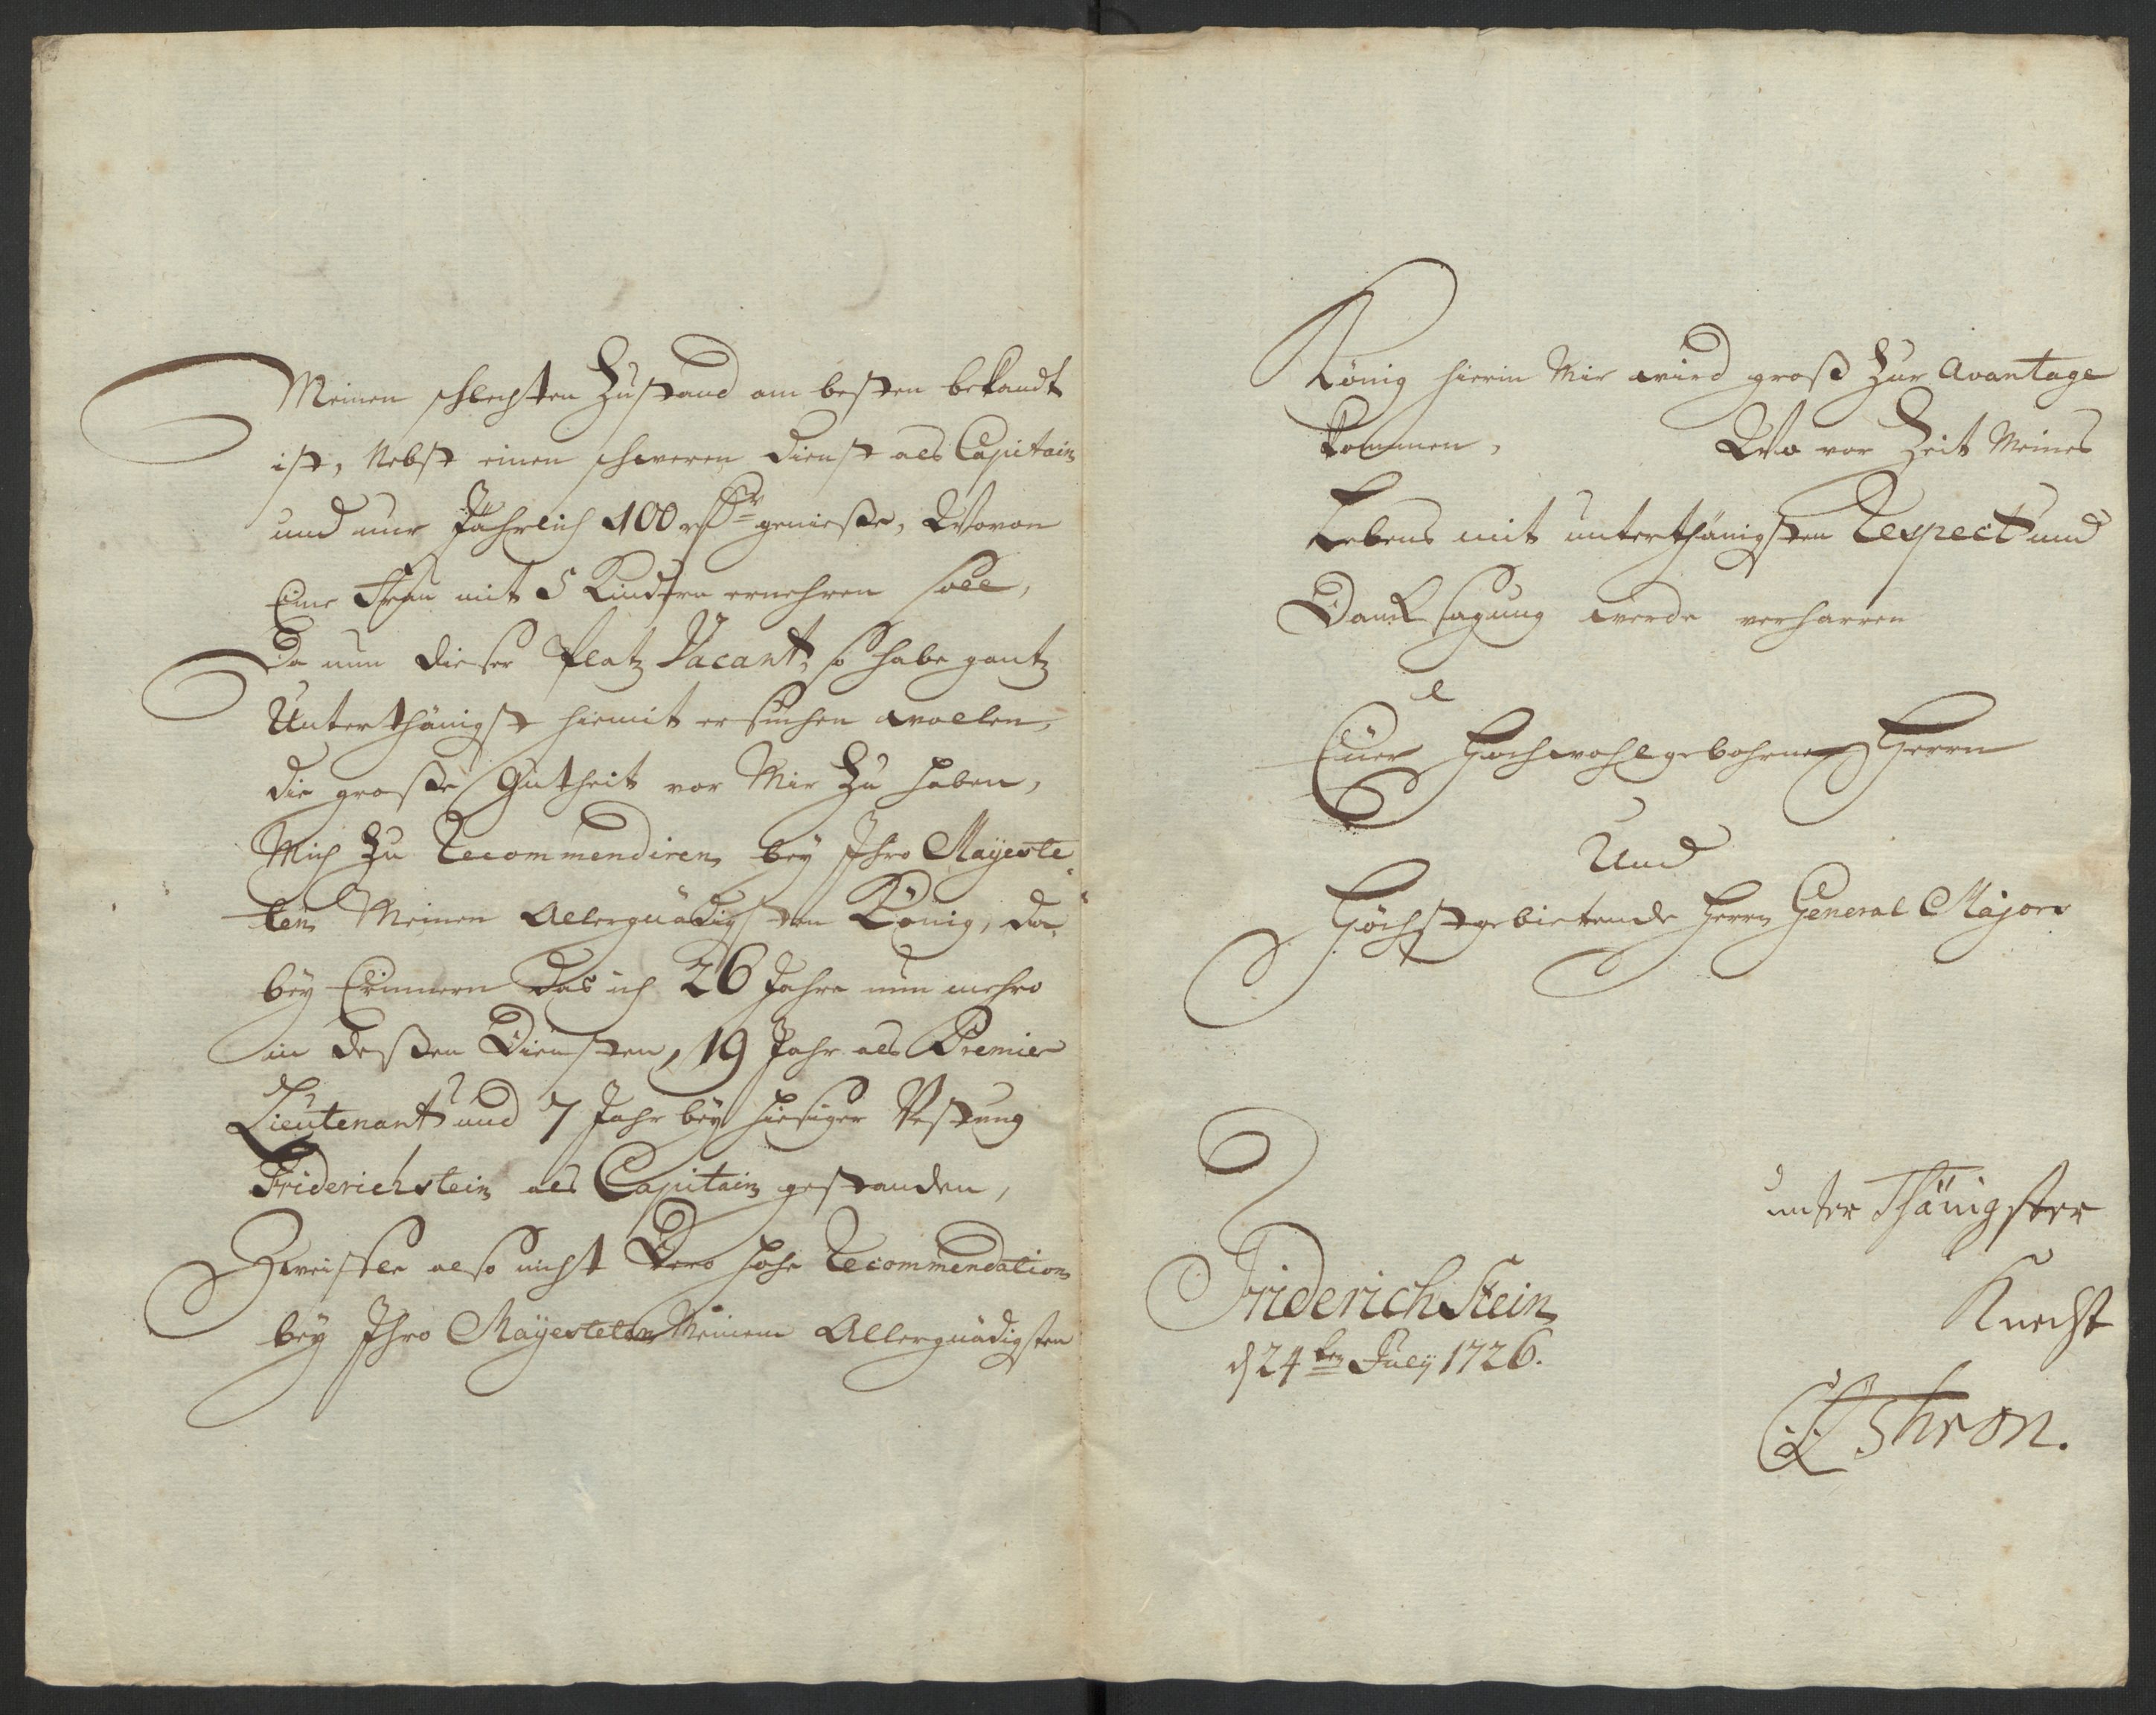 Meinen schlechten Zustand am besten bekandt
ist, Nebst einen schweren Dienst als Capitain
und nur Jährlich 100 genieße, Wovon
Eine Frau mit 5 Kindern ernehren soll,
Da nun dieser Platz Vacant, so habe gantz
Unterthänigst hiemit ersuchen wollen,
die große Gutheit vor Mir zu haben,
Mich zu Recommendiren bey Ihro Mayeste
ten Meinen Allergnädigsten König, da
bey Erinnern das ich 26 Jahre nun mehro
in deßen Diensten, 19 Jahr als Premier
Lieutenant und 7 Jahr bey hiesiger Vestung
Friderichstein als Capitain gestanden,
Zweifele also nicht Dero hohe Recommendation
bey Ihro Mayesteten Meinem Allergnädigsten
König hierin Mir wird groß zur Avantage
kommen, Wo vor Zeit Meines
Lebens mit unterthänigsten Respect und
Dancksagung werde verharren
Euer Hochwohlgebohrne Herrn
Und
Höchstgebietende Herrn General Major
unterthänigster
Knecht
Friderich Stein
d 24ten July 1726.